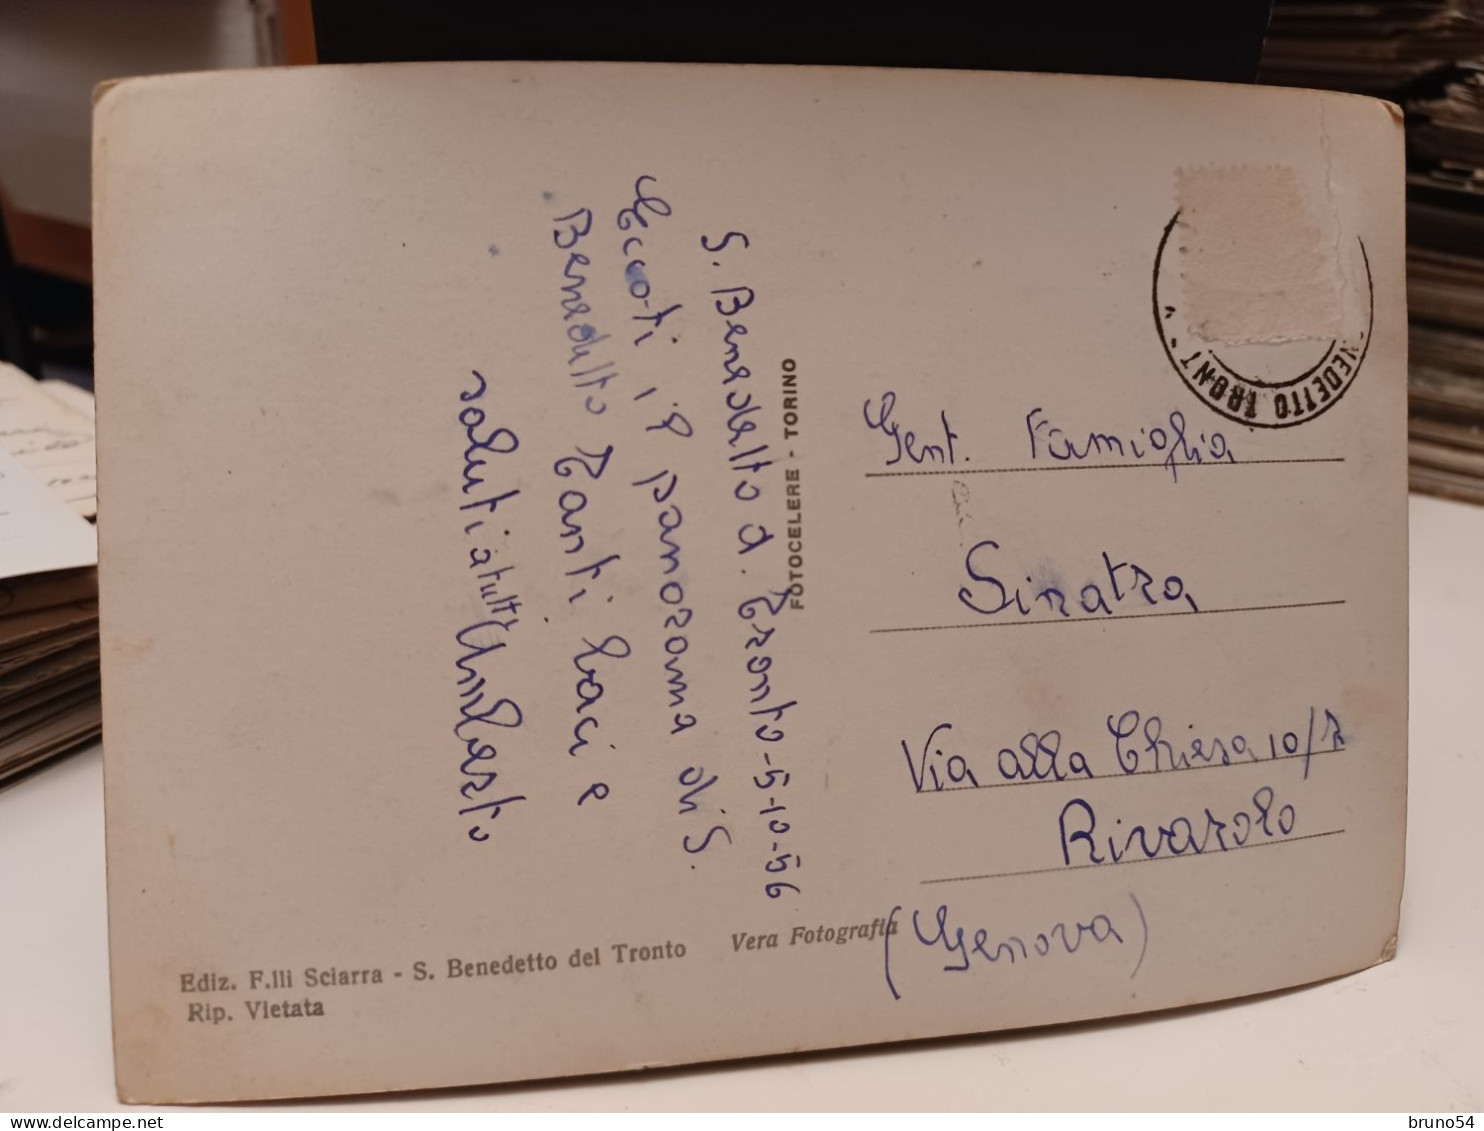 S. Benedetto d. Tronto - 5-10-56
Eccoti il panorama di S.
Benedetto Tanti baci e
saluti a tutti Umberto
FOTOCELERE - TORINO
NEDETTO TRONT
Gent. Famiglia
Sinatra
Via alla Chiesa 10/7
Rivarolo
(Genova)
Vera Fotografia
Ediz. F.lli Sciarra - S. Benedetto del Tronto
Rip. Vietata
bruno54